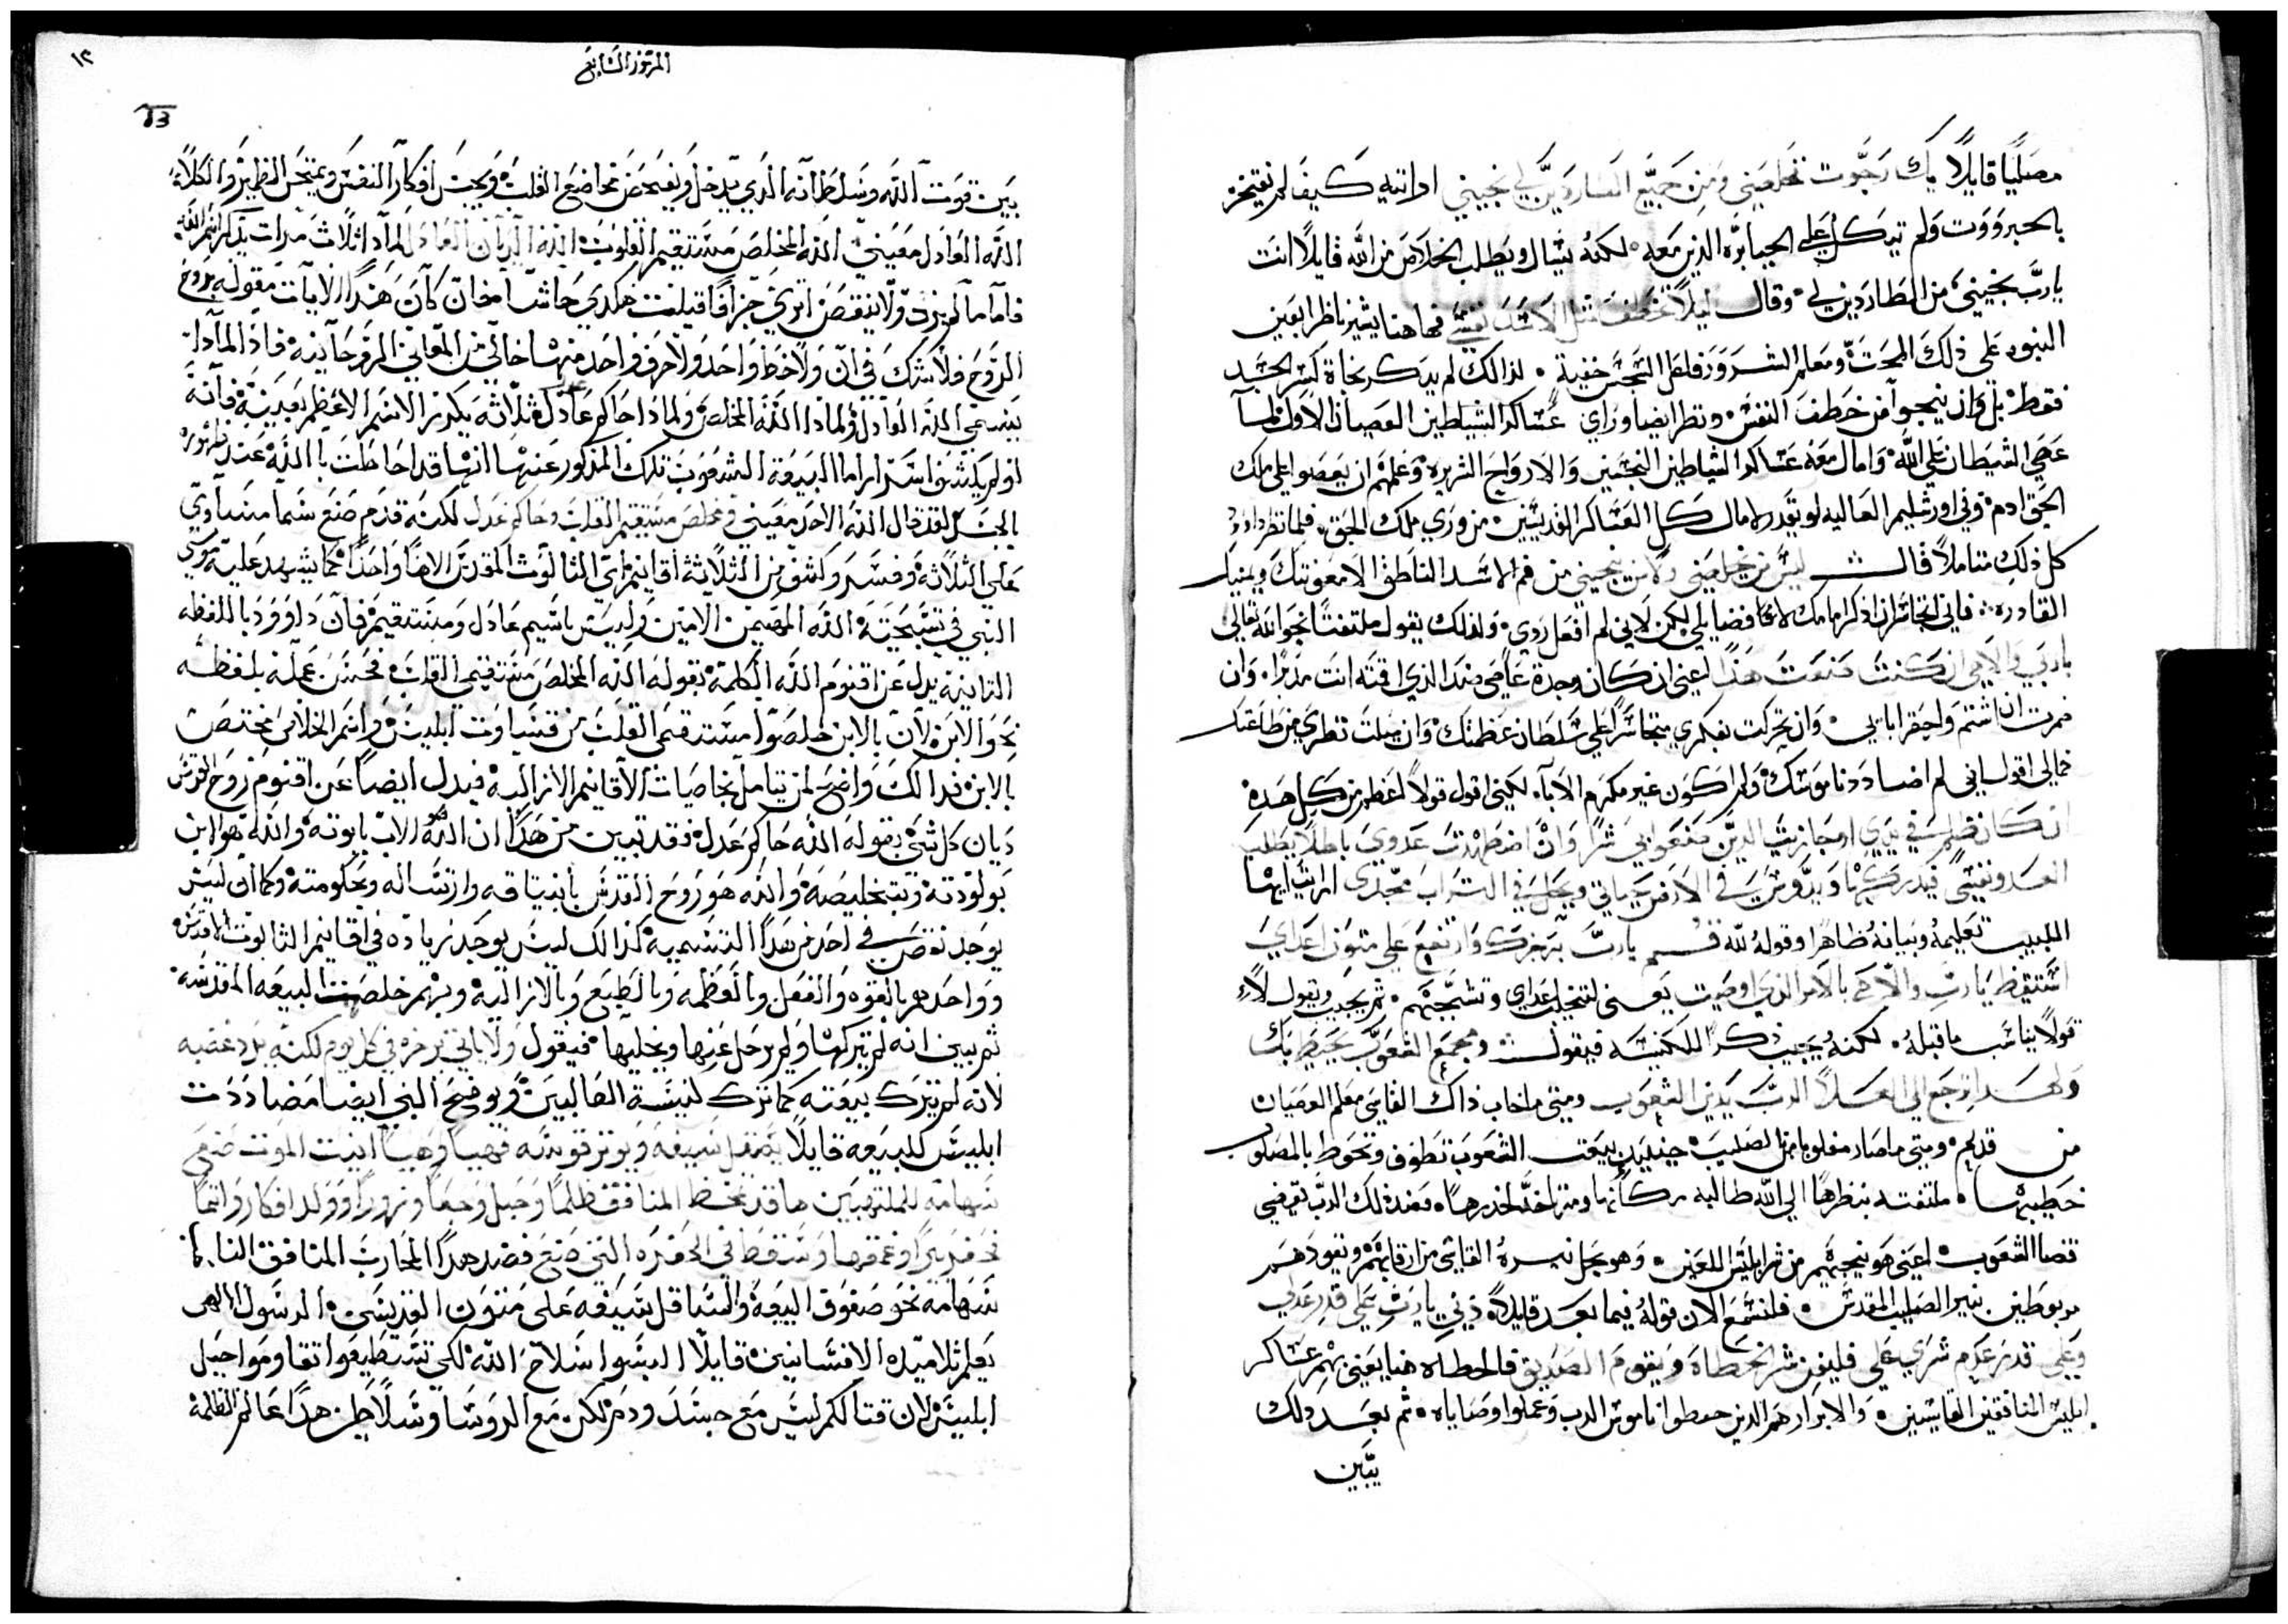 مصليًا قايلاً بك رجوت تخلصني ومن جميع المضاردين لي نجيني ارايته كيف لم يفتخر
بالحبرووت ولم يتكل على الجبابره الذين معه لكنه يسال ويطلب الخلاص من الله قايلاً انت
يارب نجيني من الطاردين لي وقال ليلاً تخطف مثل الاسد نفسي فها هنا يشير ناظرا بعين
النبوه على ذلك المحدث ومعلم الشرور وفاعل النجس خفية لذالك لم يذكر نجاة لسر الجسد
فقط بل وان ينجوا من خطف النفس ونظر ايضا وراي عساكر الشياطين العصيان الاول لما
عصي الشيطان على الله وامال معه عساكر الشياطين النجسين والارواح الشريره وعلمهم ان يعصوا على ملك
الحق ادم وفي اورشليم العاليه لو يقدر لامال كل العساكر القديسين من وري ملك الحق فلما نظر داوود
كل ذلك متاملاً قال ليس من يخلصني ولا من ينجيني من فم الاسد الناطق الا معونتك ويمينك
القادره فاني اتجاسر ان اذكر امامك لا فضايلي لكن لاني لم افعل ردي ولذلك يقول ملتفتًا نحو الله تعالى
ياربي والاهي ان كنت صنعت هذا اعني ان كان وجدة عاصي ضد الذي اقمته انت مدبرًا وان
صرت ان اشتم واحقر اباي وان تحركت بفكري متجاسرًا على سلطان عظمتك وان ميلت نظري من طاعتك
فمالي اقول اني لم اضادد ناموسك ولم اكون غير مكرم الآباء لكني اقول قولاً اعظم من كل هذه
ان كان ظلم في يدي او جازيت الذين صنعوا بي شرًا وان اضطهدت عدوي باطلاً يطلب
العدو نفسي فيدركها ويدوس في الارض حياتي ويحل في التراب مجدي ارايت ايها
اللبيب تعليمه وبيانه ظاهرا وقوله لله قم يارب برجزك وارتفع على متون اعداي
استيقظ يارب والاهي بالامر الذي اوصيت يعني لتنجيل اعداي وتشجبهم ثم يجيب ويقول لاء
قولاً يناسب ما قبله لكنه يجيب ذكر للكنيسه فيقول ومجمع الشعوب يحيط بك
ولهذا ارجع الى العلا الرب يدين الشعوب ومتى ما خاب ذاك القاسي معلم العصيان
من قديم ومتى ما صار مغلوبا من الصليب حينيذ بيعت الشعوب تطوف وتحوط بالمصلوب
خطيبها ملتفته بنظرها الى الله طالبه ومن ياخذ اخذ رها فعند ذلك الرب يقضي
قضا الشعوب اعني هو ينجيهم من شر ابليس اللعين وهو يحل نيره القاسي من ارقابهم ونقودهم
مربوطين بنير الصليب المقدس فلنسمع الان قوله فيما بعد قايلاً ديني يارب على قدر عدلي
وعلى قدر عدم شري على فليفن شر الخطاة ويقوم الصديق فالخطاه هنا يعني بهم عساكر
ابليس المنافقين القاسين والابرار هم الذين حفظوا ناموس الرب وعملوا وصاياه ثم بعد ذلك
يبين
المزمور السابع
١٣
13
بين قوت الله وسلطانه الذي يدخل ويفحص مخاضع القلب ويجس افكار النفس ويمتحن الضمير والكلاء
الله العادل معيني الله المخلص مستقيم القلوب الله الديان العادل لماذا ثلاث مرات يذكر اسم الله
فاما ما لم يزد ولا ينقص اتري جزافًا قيلت هكدي حاشا فخان كان هذا الايات مقوله بروح
الروح فلا شك في ان ولا خط واحد ولا حرف واحد منها خالي من المعاني الروحانيه فاذ لماذا
يدعي الله العادل ولماذا الله المخلص ولماذا حاكم عادل ثلاثه يكرر الاسم الاعظم بعينه فانه
اولم يكشف اسرارا ما البيعة الشعوب تلك المذكور عنها انها قد احاطت بالله عند ظهوره
بالجسد لقد قال الله الاحد معيني ومخلص مستقيم القلب وحاكم عدل لكنه قدم صنع سما مساوي
على الثلاثه وفسر وكشف من الثلاثة اقانيم اي الثالوث المقدس الاهًا واحدًا كما يشهد عليه موسي
النبي في تسبحته الله المهيمن الامين وليس باسم عادل ومستقيم فان داوود باللفظه
الثانيه يدل عن اقنوم الله الكلمة بقوله الله المخلص مستقيمي القلب فحسن عمله بلفظه
نحو الابن لان بالابن خلصوا مستقيمي القلب من قساوت ابليس واسم الخلاص يختص
بالابن فذالك واضح لمن يتامل بخاصيات الاقانيم الازاليه فيدل ايضاً عن اقنوم روح القدس
ديان كل شي بقوله الله حاكم عدل فقد تبين من هذا ان الله هو الاب بابوته والله هو الابن
بولودته وبتخليصه والله هو روح القدس بانبتاقه وارتساله وبحكومته وكما ان ليس
يوجد نقص في احد من هذا التسميه كذالك ليس يوجد زياده في اقانيم الثالوث الاقدس
وواحد هو بالقوه والفعل وبالعظمه وبالطبع وبالازاليه وبهم خلصت البيعه المقدسه
ثم يبين انه لم يتركها ولم يرحل عنها ويخليها فيقول ولا ياتي برجزه في كل يوم لكنه برد غضبه
لانه لم يترك بيعته كما ترك كنيسة الضالين ويوضح النبي ايضا مضاددت
ابليس للبيعه قايلاً يصقل سيفه ويوتر قوسه فهيا وهيا انيت الموت صنع
سهامه للملتهبين ها قد تمخض المنافق ظلمًا وحبل وجعًا وزورًا وولد افكار واثمًا
نحفر بيرًا وعمقها وسقط في الحفره التي صنع فضد هذا المحارب المنافق النابا
سهامه نحو صفوف البيعة والساقل سيفه على متون القديسين الرسول الالهي
يعلم تلاميذه الانسانيين قايلاً البسوا سلاح الله لكي تستطيعوا تقاوموا حيل
ابليس لان قتالكم ليس مع جسد ودم لكن مع الروسا وسلاطين هذا عالم الظلمة